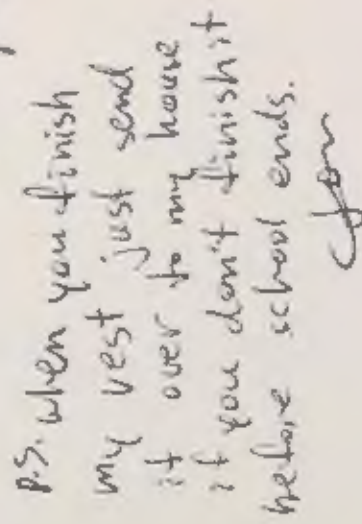 p.s. when you finish
my vest just send
it over to my house
if you don't finish it
before school ends.